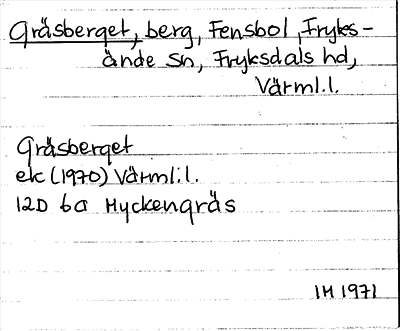 Gräsberget, berg, Fensbol, Fryks-
ände sn, Fryksdals hd,
Värml.l.
Gräsberget
ek (1970) Värml:l.
12D 6a Myckengräs
IM 1971